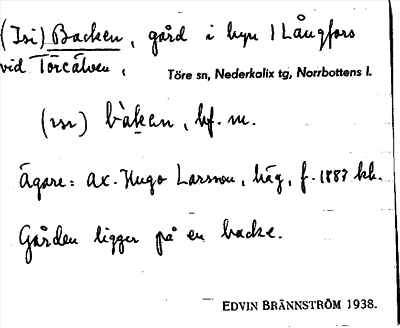 (Isi) Backen, gård i byn Långfors
vid Töreälven,
Töre sn, Nederkalix tg, Norrbottens l.
bàkan, bf. m.
Ägare: Ax. Hugo Larsson, häg, f. 1887 kh.
Gården ligger på en backe.
EDVIN BRÄNNSTRÖM 1938.